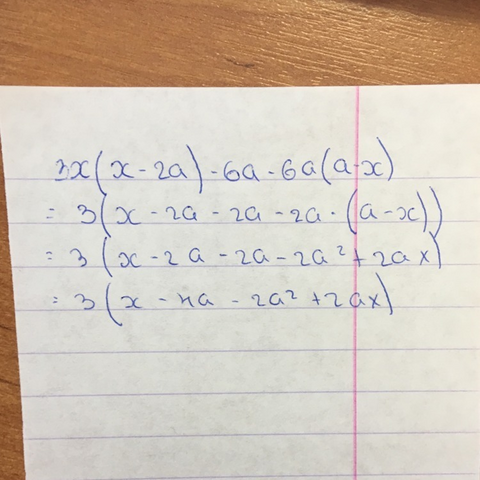 3x(x-2a)-6a-6a(a-x)
= 3(x-2a-2a-2a·(a-x))
= 3(x-2a-2a-2a²+2ax)
= 3(x-4a-2a²+2ax)